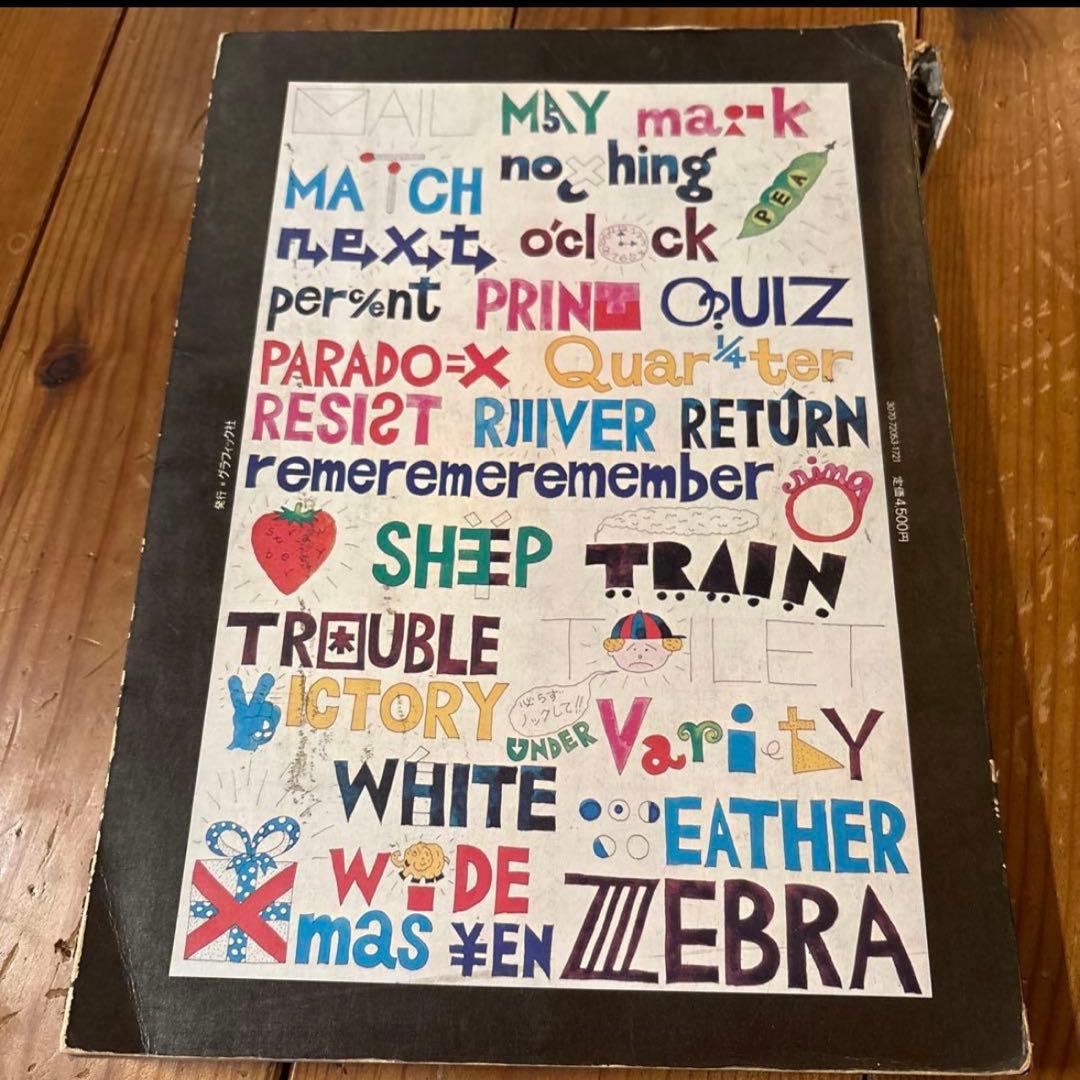 MAIL MAY 5 mark
MATCH nothing PEA
next o'clock
perc%ent PRINT Q?UIZ
PARADO=X Quar1/4ter
RESIST RIIIVER RETURN
remeremeremeremember ring
SHEEP TRAIN
TROUBLE TOILET
VICTORY 必らずノックして!! UNDER Variety
WHITE
WEATHER
WIDE
Xmas ¥EN ZEBRA
発行・グラフィック社
3070-72063-1721 定価4,500円